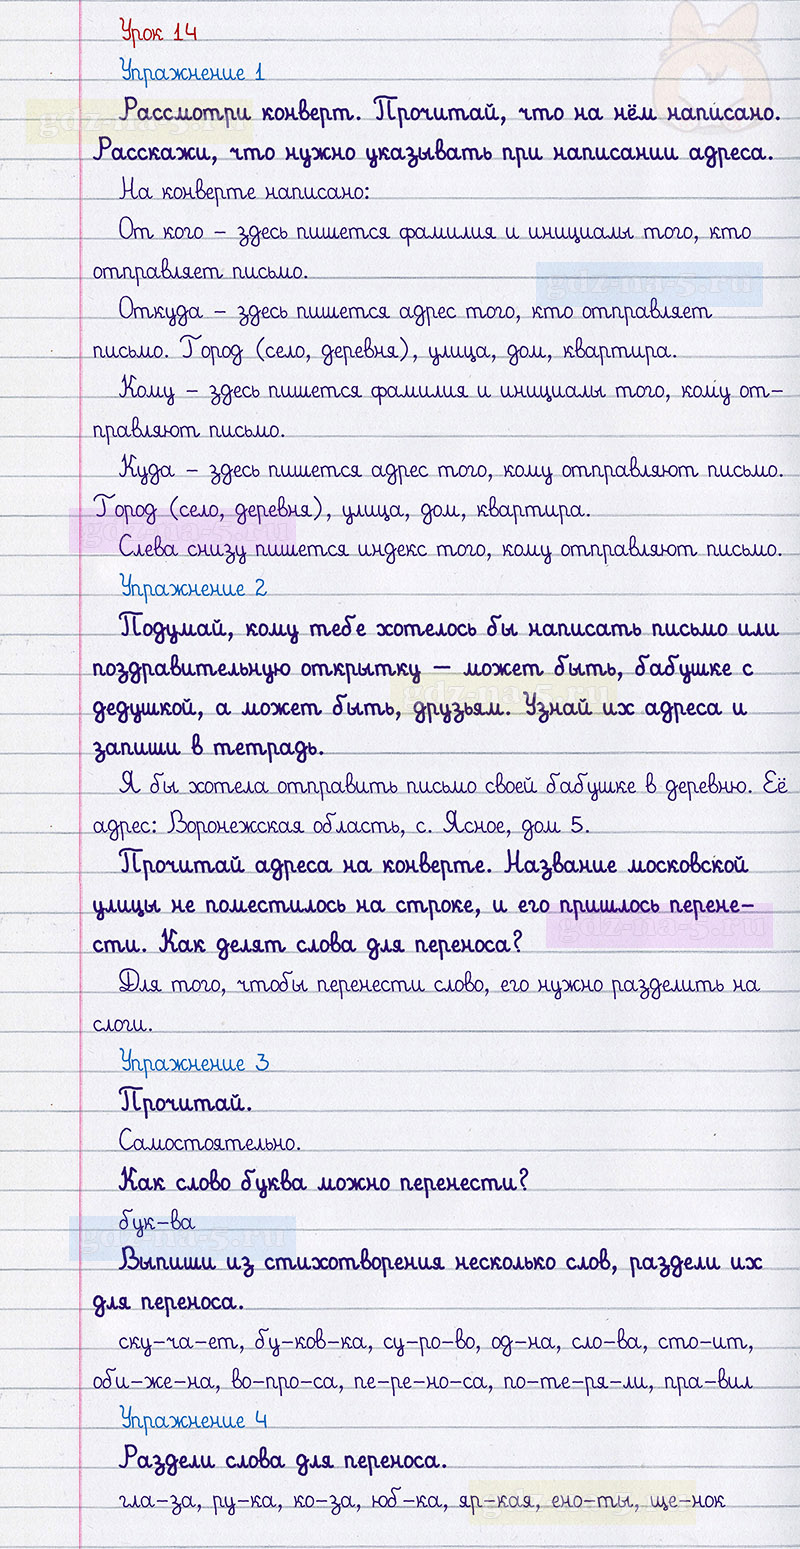 Урок 14
Упражнение 1
Рассмотри конверт. Прочитай, что на нём написано.
Расскажи, что нужно указывать при написании адреса.
На конверте написано:
От кого – здесь пишется фамилия и инициалы того, кто
отправляет письмо.
Откуда – здесь пишется адрес того, кто отправляет
письмо. Город (село, деревня), улица, дом, квартира.
Кому – здесь пишется фамилия и инициалы того, кому от-
правляют письмо.
Куда – здесь пишется адрес того, кому отправляют письмо.
Город (село, деревня), улица, дом, квартира.
Слева снизу пишется индекс того, кому отправляют письмо.
Упражнение 2
Подумай, кому тебе хотелось бы написать письмо или
поздравительную открытку — может быть, бабушке с
дедушкой, а может быть, друзьям. Узнай их адреса и
запиши в тетрадь.
Я бы хотела отправить письмо своей бабушке в деревню. Её
адрес: Воронежская область, с. Ясное, дом 5.
Прочитай адреса на конверте. Название московской
улицы не поместилось на строке, и его пришлось перене-
сти. Как делят слова для переноса?
Для того, чтобы перенести слово, его нужно разделить на
слоги.
Упражнение 3
Прочитай.
Самостоятельно.
Как слово буква можно перенести?
бук-ва
Выпиши из стихотворения несколько слов, раздели их
для переноса.
ску-ча-ет, бу-ков-ка, су-ро-во, од-на, сло-ва, сто-ит,
оби-же-на, во-про-са, пе-ре-но-са, по-те-ря-ли, пра-вил
Упражнение 4
Раздели слова для переноса.
гла-за, ру-ка, ко-за, юб-ка, яр-кая, ено-ты, ще-нок
gdz-na-5.ru
gdz-na-5.ru
gdz-na-5.ru
gdz-na-5.ru
gdz-na-5.ru
gdz-na-5.ru
gdz-na-5.ru